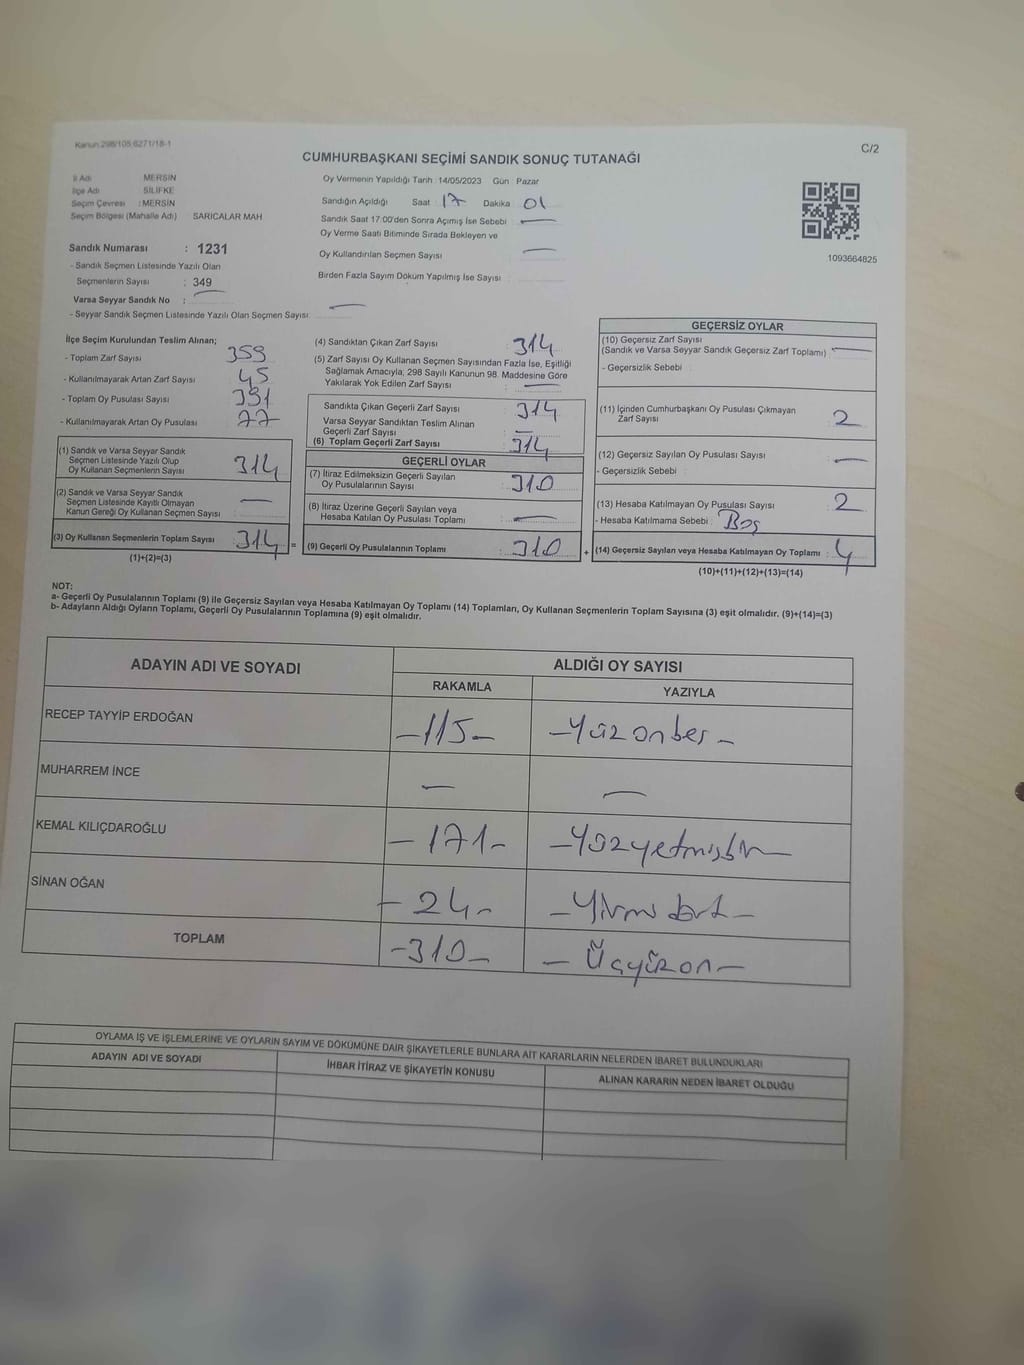 Kanun:298/105,6271/18-1
C/2
CUMHURBAŞKANI SEÇİMİ SANDIK SONUÇ TUTANAĞI
İl Adı MERSİN
İlçe Adı SİLİFKE
Seçim Çevresi : MERSİN
Seçim Bölgesi (Mahalle Adı) SARICALAR MAH
Sandık Numarası : 1231
- Sandık Seçmen Listesinde Yazılı Olan
Seçmenlerin Sayısı : 349
Varsa Seyyar Sandık No : —
- Seyyar Sandık Seçmen Listesinde Yazılı Olan Seçmen Sayısı: —
Oy Vermenin Yapıldığı Tarih : 14/05/2023 Gün : Pazar
Sandığın Açıldığı Saat 17 Dakika 01
Sandık Saat 17:00'den Sonra Açılmış İse Sebebi : —
Oy Verme Saati Bitiminde Sırada Bekleyen ve
Oy Kullandırılan Seçmen Sayısı : —
Birden Fazla Sayım Döküm Yapılmış İse Sayısı :
1093664825
İlçe Seçim Kurulundan Teslim Alınan;
- Toplam Zarf Sayısı : 359
- Kullanılmayarak Artan Zarf Sayısı : 45
- Toplam Oy Pusulası Sayısı : 391
- Kullanılmayarak Artan Oy Pusulası : 77
(1) Sandık ve Varsa Seyyar Sandık
Seçmen Listesinde Yazılı Olup
Oy Kullanan Seçmenlerin Sayısı : 314
(2) Sandık ve Varsa Seyyar Sandık
Seçmen Listesinde Kayıtlı Olmayan
Kanun Gereği Oy Kullanan Seçmen Sayısı : —
(3) Oy Kullanan Seçmenlerin Toplam Sayısı : 314 =
(1)+(2)=(3)
(4) Sandıktan Çıkan Zarf Sayısı : 314
(5) Zarf Sayısı Oy Kullanan Seçmen Sayısından Fazla İse, Eşitliği
Sağlamak Amacıyla; 298 Sayılı Kanunun 98. Maddesine Göre
Yakılarak Yok Edilen Zarf Sayısı : —
Sandıkta Çıkan Geçerli Zarf Sayısı : 314
Varsa Seyyar Sandıktan Teslim Alınan
Geçerli Zarf Sayısı : —
(6) Toplam Geçerli Zarf Sayısı : 314
GEÇERLİ OYLAR
(7) İtiraz Edilmeksizin Geçerli Sayılan
Oy Pusulalarının Sayısı : 310
(8) İtiraz Üzerine Geçerli Sayılan veya
Hesaba Katılan Oy Pusulası Toplamı : —
(9) Geçerli Oy Pusulalarının Toplamı : 310 +
GEÇERSİZ OYLAR
(10) Geçersiz Zarf Sayısı
(Sandık ve Varsa Seyyar Sandık Geçersiz Zarf Toplamı) : —
- Geçersizlik Sebebi :
(11) İçinden Cumhurbaşkanı Oy Pusulası Çıkmayan
Zarf Sayısı : 2
(12) Geçersiz Sayılan Oy Pusulası Sayısı : —
- Geçersizlik Sebebi :
(13) Hesaba Katılmayan Oy Pusulası Sayısı : 2
- Hesaba Katılmama Sebebi : Boş
(14) Geçersiz Sayılan veya Hesaba Katılmayan Oy Toplamı : 4
(10)+(11)+(12)+(13)=(14)
NOT:
a- Geçerli Oy Pusulalarının Toplamı (9) ile Geçersiz Sayılan veya Hesaba Katılmayan Oy Toplamı (14) Toplamları, Oy Kullanan Seçmenlerin Toplam Sayısına (3) eşit olmalıdır. (9)+(14)=(3)
b- Adayların Aldığı Oyların Toplamı, Geçerli Oy Pusulalarının Toplamına (9) eşit olmalıdır.
ADAYIN ADI VE SOYADI ALDIĞI OY SAYISI
RAKAMLA YAZIYLA
RECEP TAYYİP ERDOĞAN -115- -Yüzonbeş-
MUHARREM İNCE — —
KEMAL KILIÇDAROĞLU -171- -Yüzyetmişbir-
SİNAN OĞAN -24- -Yirmidört-
TOPLAM -310- -Üçyüzon-
OYLAMA İŞ VE İŞLEMLERİNE VE OYLARIN SAYIM VE DÖKÜMÜNE DAİR ŞİKAYETLERLE BUNLARA AİT KARARLARIN NELERDEN İBARET BULUNDUKLARI
ADAYIN ADI VE SOYADI İHBAR İTİRAZ VE ŞİKAYETİN KONUSU ALINAN KARARIN NEDEN İBARET OLDUĞU